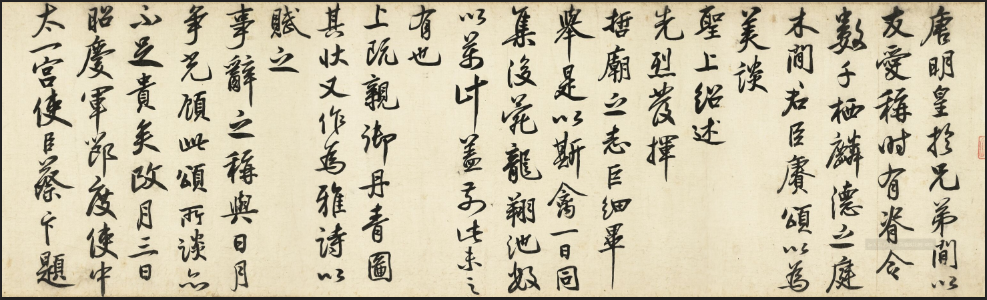 唐明皇於兄弟間以
友愛稱时有脊令
數千栖麟德之庭
木間君臣賡頌以為
美談
聖上紹述
先烈發揮
哲廟之志巨細畢
舉是以斯禽一日同
集後苑龍翔池數
以萬計蓋前此未之
有也
上既親御丹青圖
其状又作為雅詩以
賦之
事辭之稱與日月
爭光顧此頌所談亦
不足貴矣政月三日
昭慶軍節度使中
太一宮使臣蔡卞題